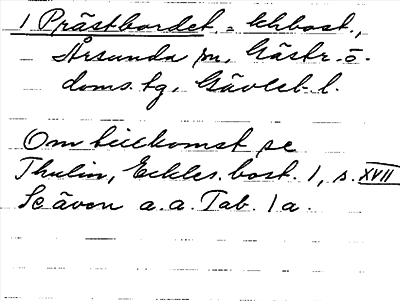 1 Prästbordet. = khbost.,
Årsunda sn, Gästr. ö.
doms. tg, Gävleb. l.
Om tillkomst se
Thulin, Eckles. bost. 1, s. XVII
Se även a. a. Tab. 1 a.